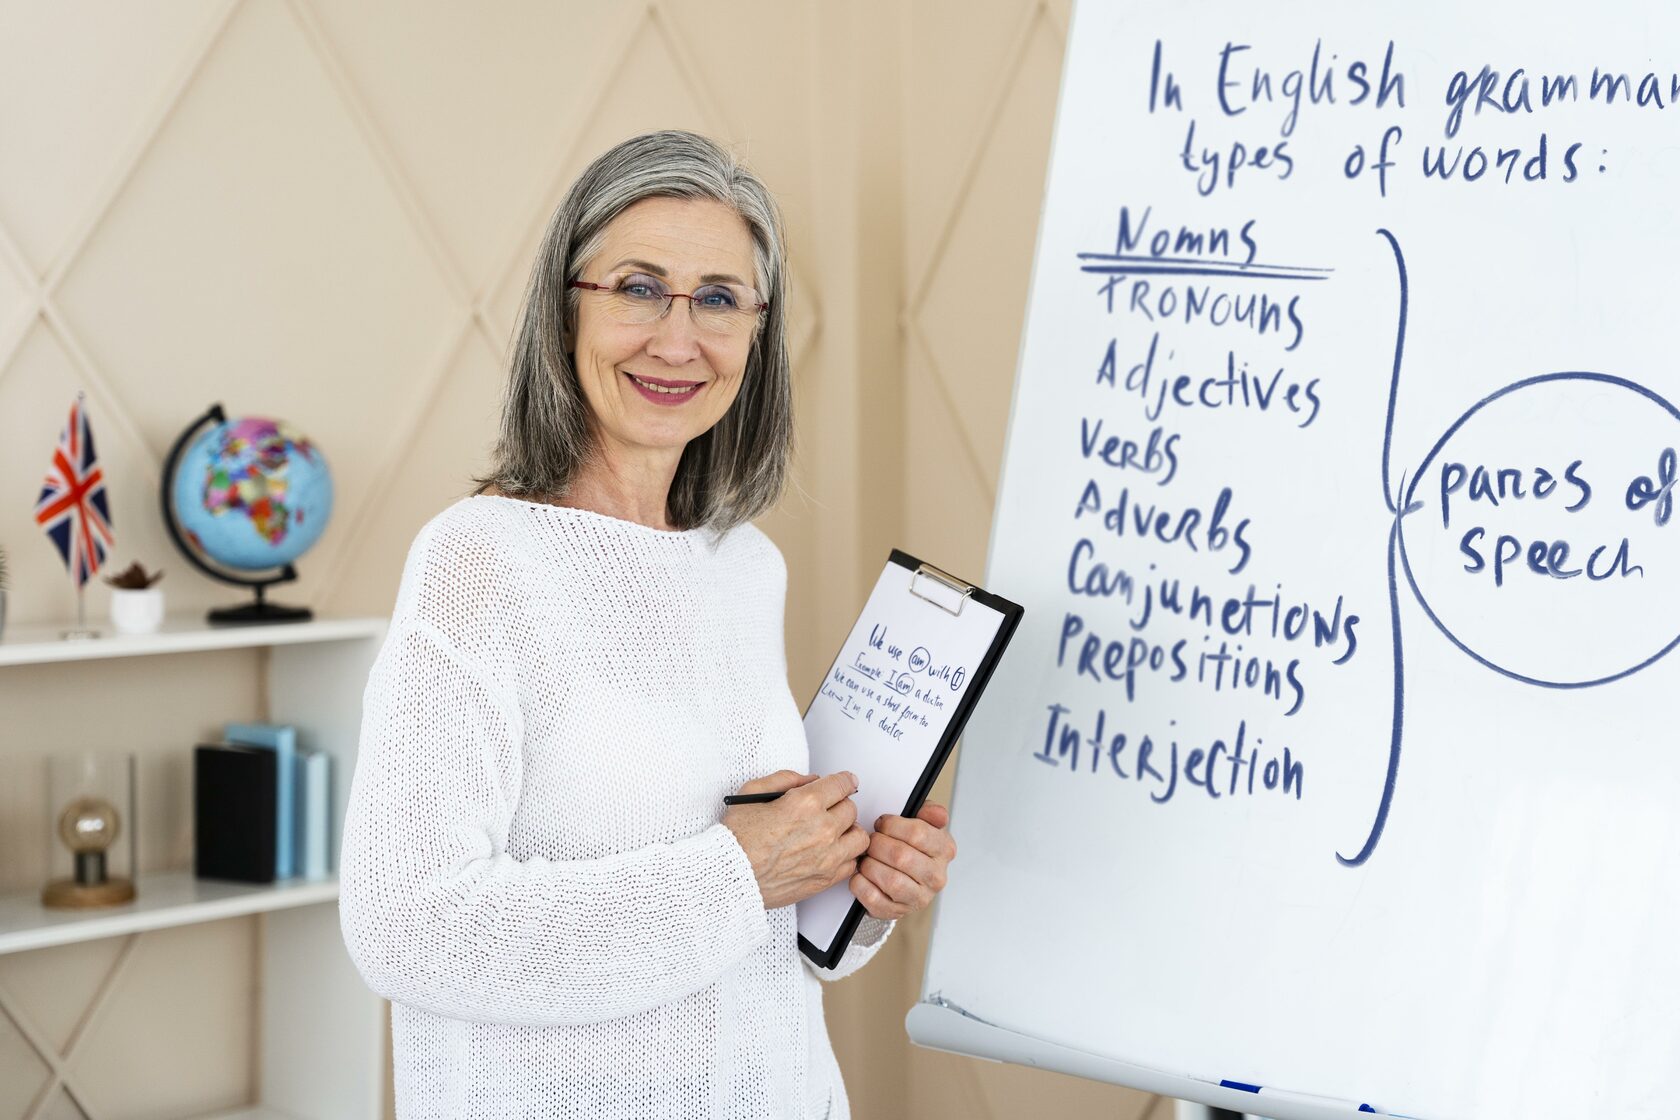 In English grammar
types of words:
Nomns
PRONOUNS
Adjectives
Verbs
Adverbs
Conjunctions
Prepositions
Interjection
parts of
speech
We use am with I
Example: I am a doctor
We can use a short form too
I'm a doctor